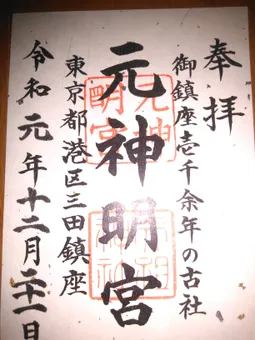 奉拝
御鎮座壱千余年の古社
元神明宮
東京都港区三田鎮座
令和元年十二月二十一日